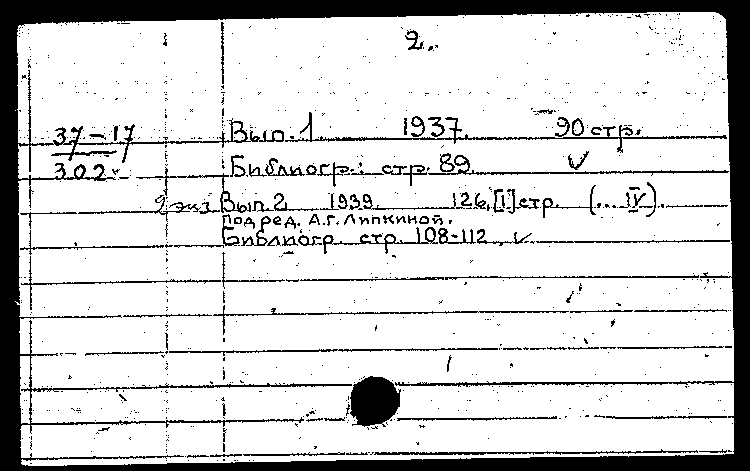 2.
37-17 Вып. 1 1937. 90 стр.
302 Библиогр.: стр. 89.
2 экз Вып. 2. 1939. 126,[1] стр. (... IV).
Под ред. А.Г. Липкиной.
Библиогр. стр. 108-112